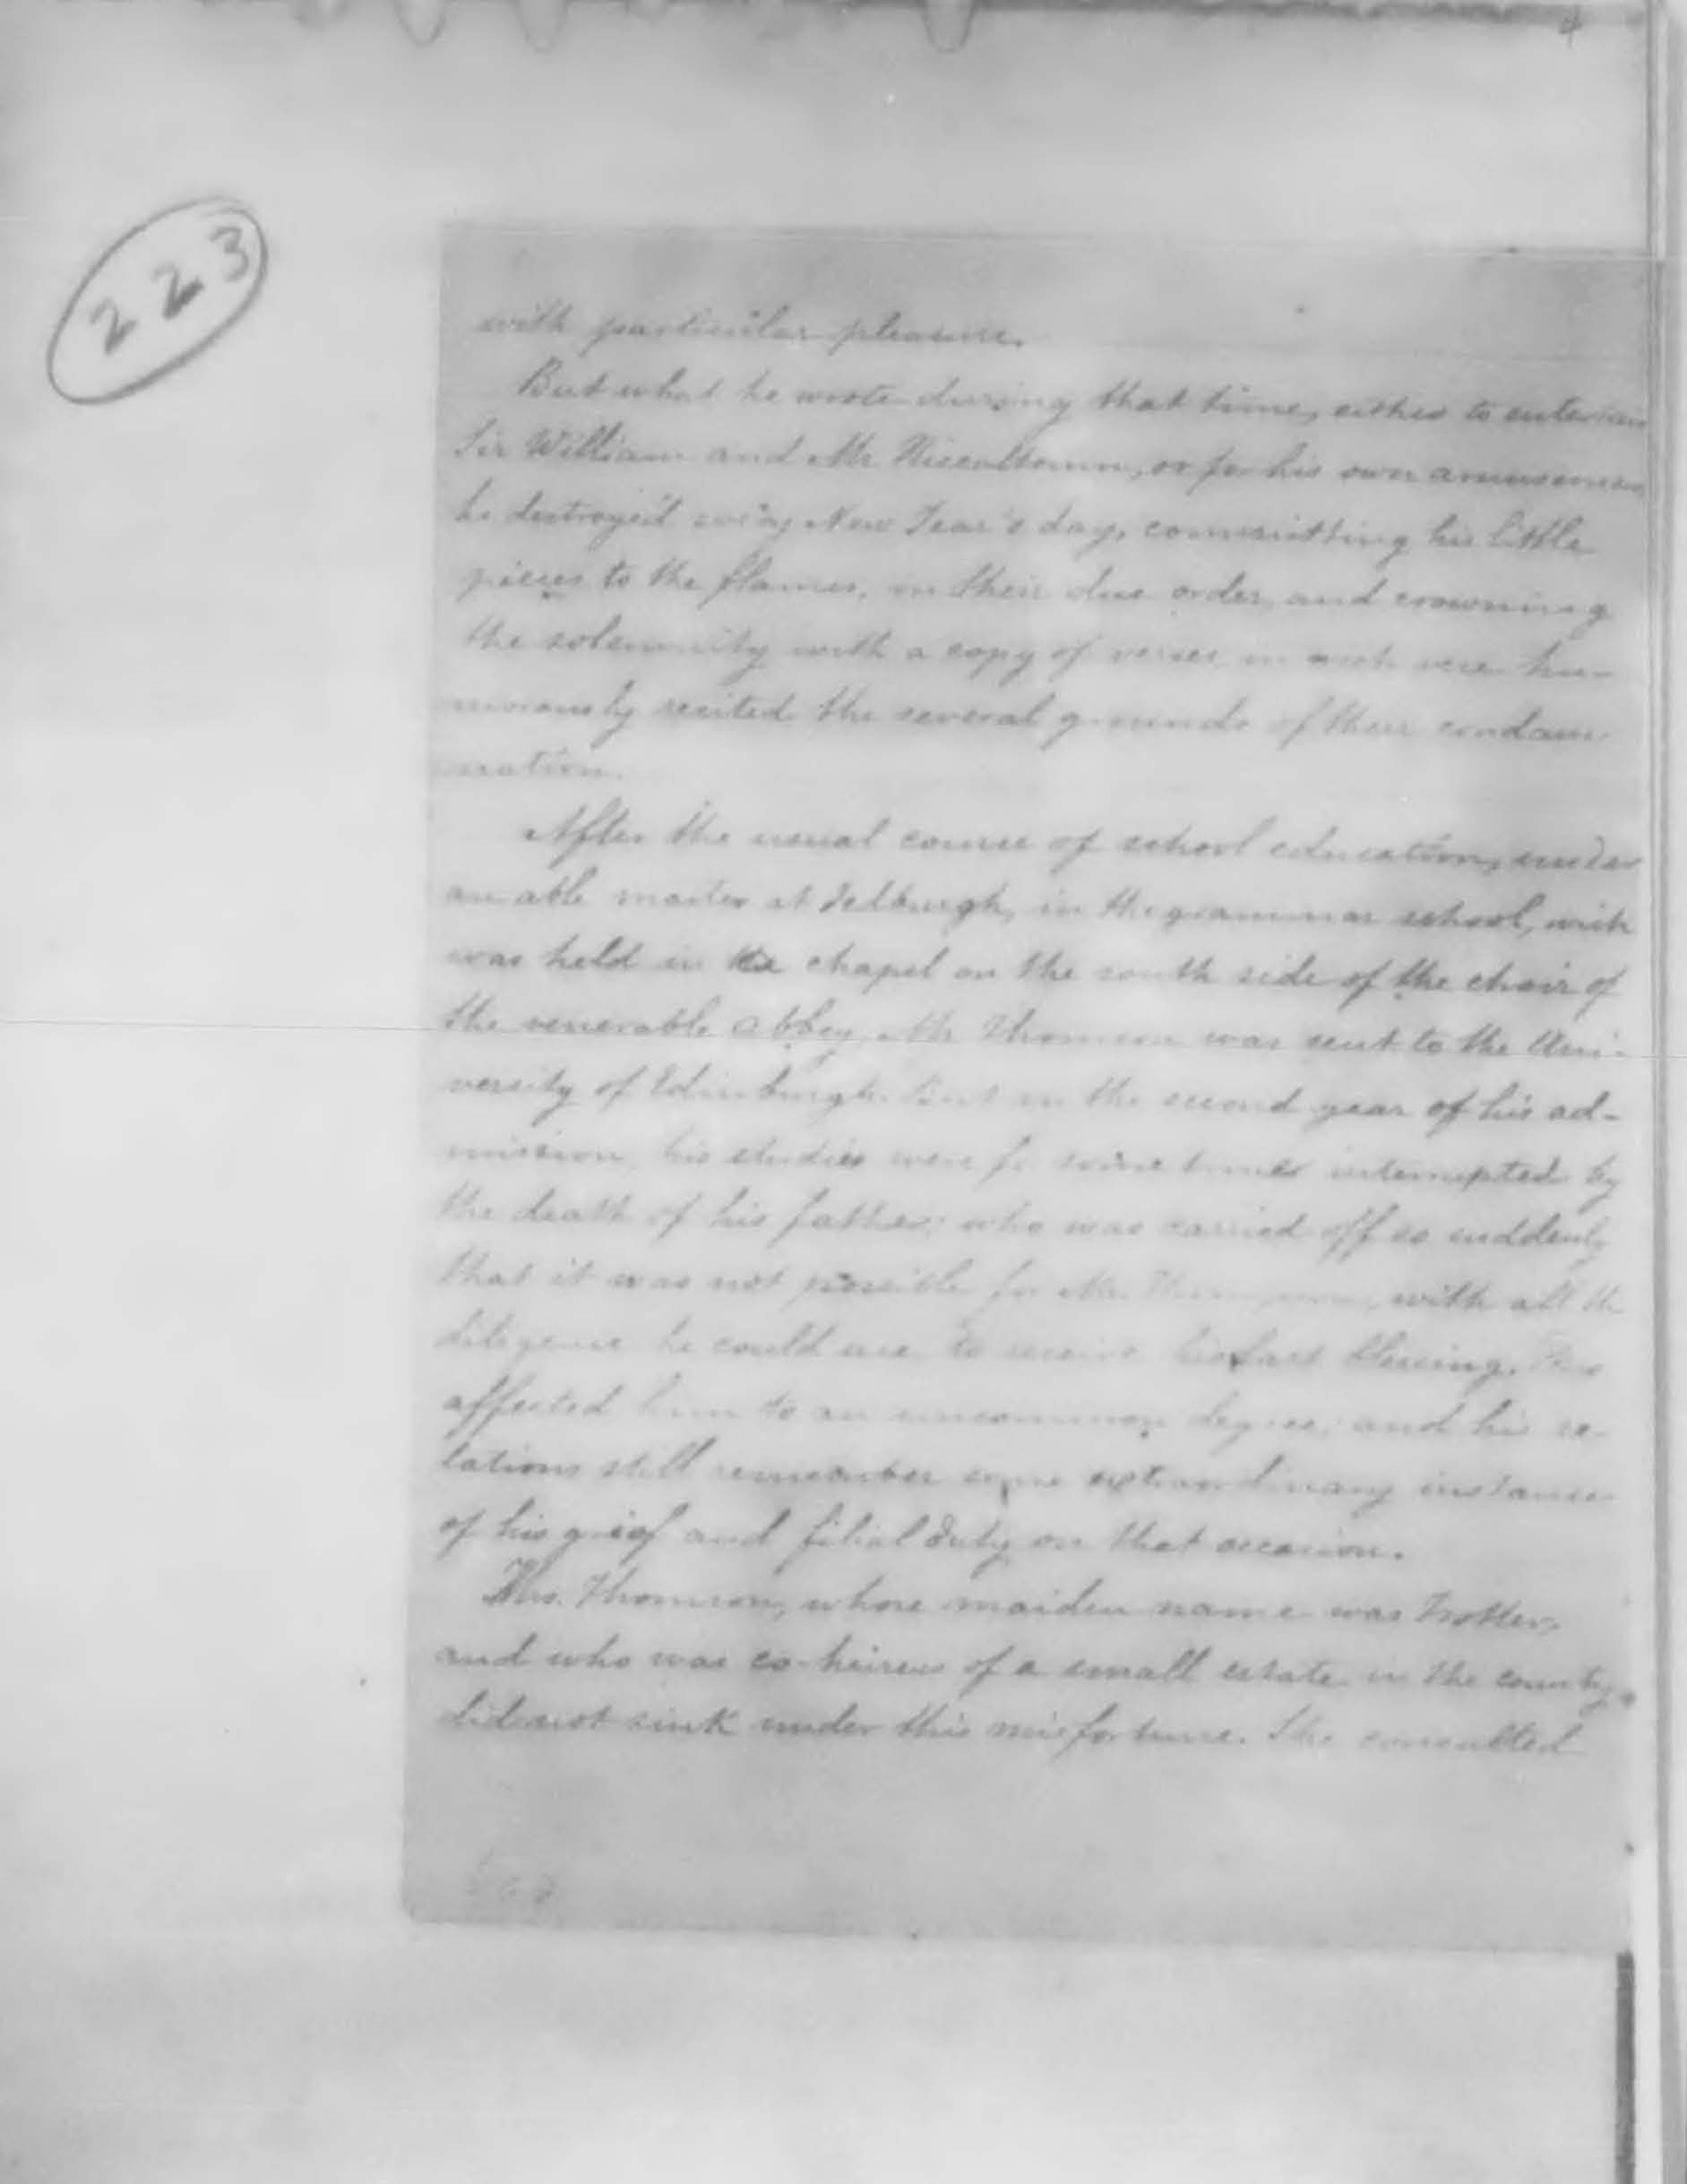 4
223
with particular pleasure.
But what he wrote during that time, either to entertain
Sir William and Mr Riccaltown, or for his own amusement
he destroyed every New Year's day, committing his little
pieces to the flames, in their due order, and crowning
the solemnity with a copy of verses in wich were hu-
mourously recited the several grounds of their condam-
nation.
After the usual course of school education, under
an able master at Jedburgh, in the grammar school, wich
was held in the chapel on the south side of the choir of
the venerable abbey, Mr Thomson was sent to the Uni-
versity of Edinburgh. But in the second year of his ad-
mission, his studies were for some times interrupted by
the death of his father; who was carried off so suddenly
that it was not possible for Mr. Thompson, with all the
diligence he could use, to receive his last blessing. This
affected him to an uncommon degree, and his re-
lations still remember some extraordinary instances
of his grief and filial duty on that occasion.
Mrs. Thomson, whose maiden name was Trotter,
and who was co-heiress of a small estate in the county,
did not sink under this misfortune. She consulted